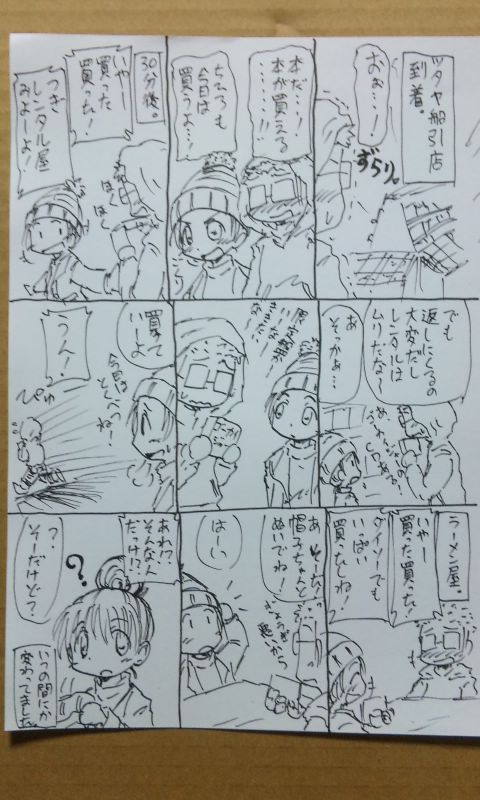 ツタヤ船引店
到着。
おぉ…!
ずらり。
本だ…!
本が買える
……!!
ちひろも
今日は
買うよ…!
30分後。
いやー
買った
買った!
つぎ
レンタル屋
みよーよ!
ほく
ほく
でも
返しにくるの
大変だし
レンタルは
ムリだな〜
あ
そっかぁ…
買って
いーよ
今日は
とくべつね!
うん!
ぴゅー
ラーメン屋。
いやー
買った買った!
ダイソーでも
いっぱい
買ったしね!
あ、そーだ
帽子ちゃんと
ぬいでね!
はーいっ
あれ?
そんな人
だっけ!?
?
そーだけど?
?
いつの間にか
変わってました